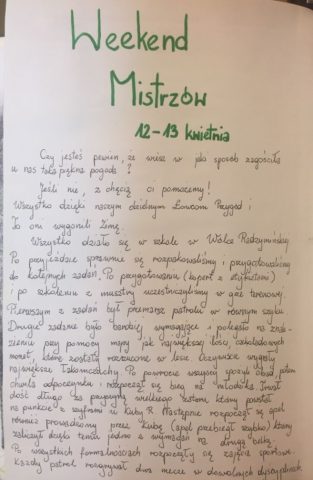 Weekend
Mistrzów
12-13 kwietnia
Czy jesteś pewien, że wiesz w jaki sposób zagościła
u nas taka piękna pogoda?
Jeśli nie, z chęcią ci pomożemy!
Wszystko dzięki naszym dzielnym Łowcom Przygód!
To oni wygonili Zimę.
Wszystko działo się w szkole w Wólce Radzymińskiej
Po przyjeździe sprawnie się rozpakowaliśmy i przygotowaliśmy
do kolejnych zadań. Po przygotowaniu (kopert z)
i po szkoleniu z musztry uczestniczyliśmy w grze terenowej.
Pierwszym z zadań był przemarsz patrolu w równym szyku
Drugie zadanie było bardziej wymagające i polegało na znale-
zieniu przy pomocy mapy jak największej ilości czekoladowych
monet, które zostały rozrzucone w lesie. Oczywiście wygrały
największe łakomczuchy. Po powrocie wszyscy spożyli obiad, potem
chwila odpoczynku i rozpoczął się bieg na młodzika. Trwał
dość długo za przyczyną wielkiego zatoru, który powstał
na punkcie z szyframi u Kuby R. Następnie rozpoczął się apel
również prowadzony przez Kubę (apel przebiegł szybko) który
zaliczył dzięki temu jedno z wymagań na drugą belkę.
Po wszystkich formalnościach rozpoczęły się zajęcia sportowe
każdy patrol rozgrywał dwa mecze w dowolnych dyscyplinach.